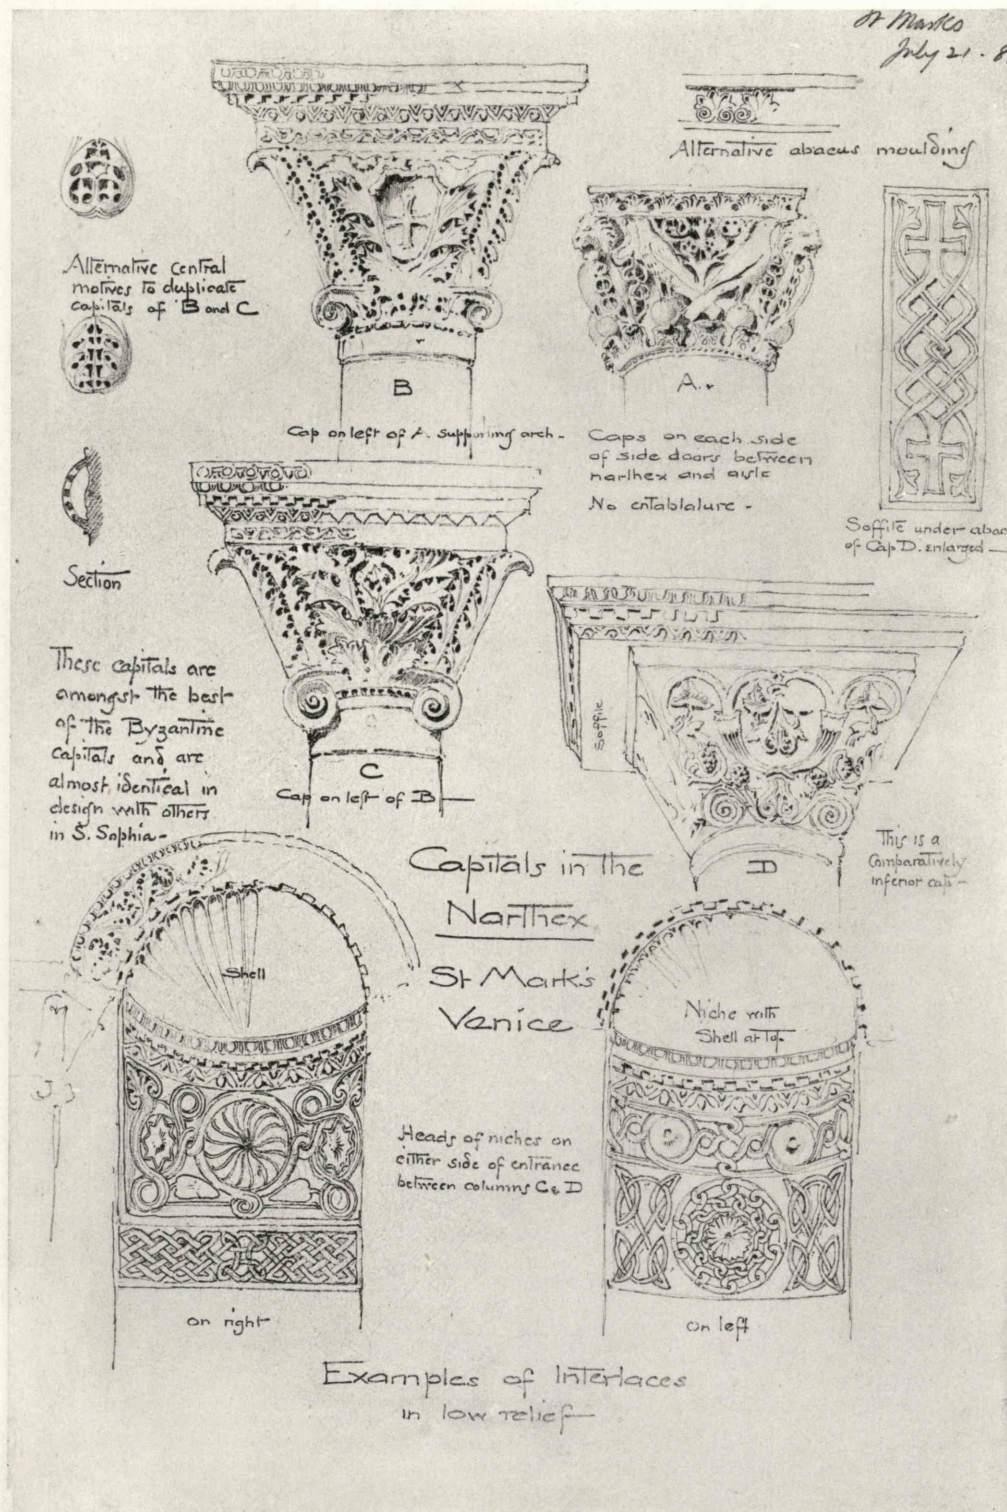 St Marks
July 21. 8
Alternative abacus moulding
Alternative central
motives to duplicate
capitals of B and C
B
A.
Cap on left of A. supporting arch.
Caps on each side
of side doors between
narthex and aisle
No entablature.
Soffite under abac
of Cap D. enlarged
Section
These capitals are
amongst the best
of the Byzantine
capitals and are
almost identical in
design with others
in S. Sophia.
Soffite
C
Cap on left of B
D
This is a
Comparatively
inferior cap
Capitals in the
Narthex
St Mark's
Venice
Shell
Niche with
Shell at Top
Heads of niches on
either side of entrance
between columns C & D
on right
on left
Examples of Interlaces
in low relief